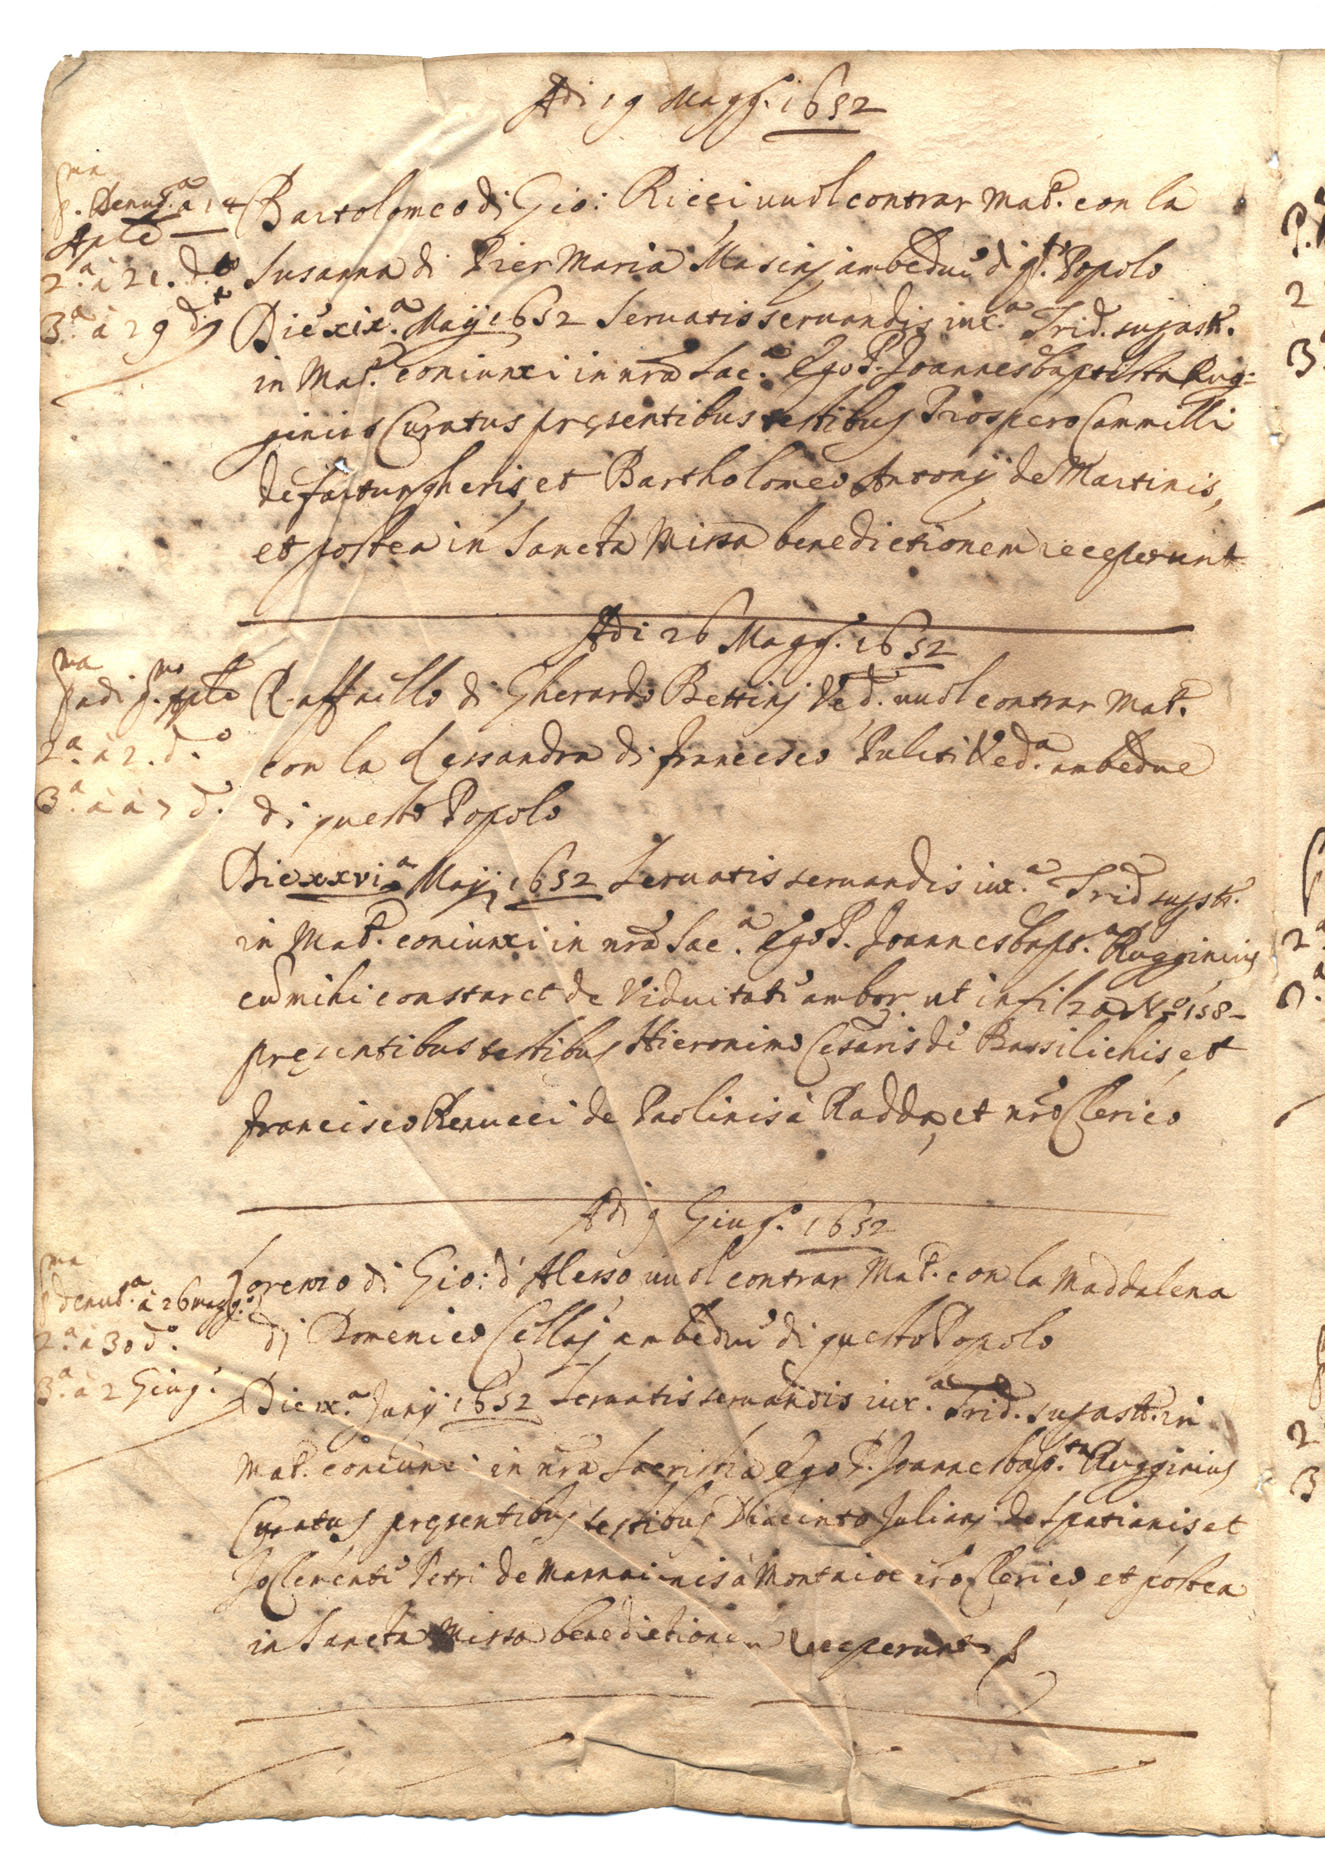 Adi 19 Magg.º 1652
p.ma Denunt.a à 14
Aple
2.a à 21. d.º
3.a à 29 d.º
Bartolomeo di Gio: Ricci uuol contrar Mat.º con la
Susanna di Pier Maria Masinj ambedui di q.to Popolo
Die xix.a Maij 1652 Seruatis seruandis iux.a Trid. supasti.
in Mat.º coniunxi in nrâ Sac.a Ego P. Joannesbaptista Rug=
ginius Curatus pręsentibus testibus Prospero Cammilli
de fortungheris, et Bartholomeo Antonij de Martinis,
et postea in Sancta Missa benedictionem receperunt
Adi 26 Magg.º 1652
p.ma adi p.mo Aple
2.a à 2. d.º
3.a à à 7 d.º
Raffaello di Gherardo Bettinj Ved.º uuol contrar Mat.º
con la Lessandra di francesco Puliti Ved.a ambedue
di questo Popolo
Die xxvi.a Maij 1652 Seruatis seruandis iux.a Trid supsti.
in Mat.º coniunxi in nrâ Sac.a Ego P. Joannesbapt.a Rugginius
cû mihi constaret de Viduitate ambor. ut in filza N.º 158-
pręsentibus testibus Hieronimo Cesaris de Bassilichis, et
francisco Renucci de Paolinis à Radda, et nrô Clerico
Adi 9 Giug.º 1652
p.ma denunt.a à 26 magg.º
2.a à 30 d.º
3.a à 2 Giug.º
Lorenzo di Gio: d'Alesso uuol contrar Mat.º con la Maddalena
di Domenico Cellaj ambedui di questo Popolo
Die ix.a Junij 1652 Seruatis seruandis iux.a Trid. supasti. in
Mat.º coniunxi in nrâ Sacristia Ego P. Joannesbap.ta Rugginius
Curatus pręsentibus testibus Diacinto Julianj de Spatianis, et
Jo Clementi Petri de Mannaionis à Montaione nrô Clerico, et postea
in Sancta Missa benedictionem receperunt